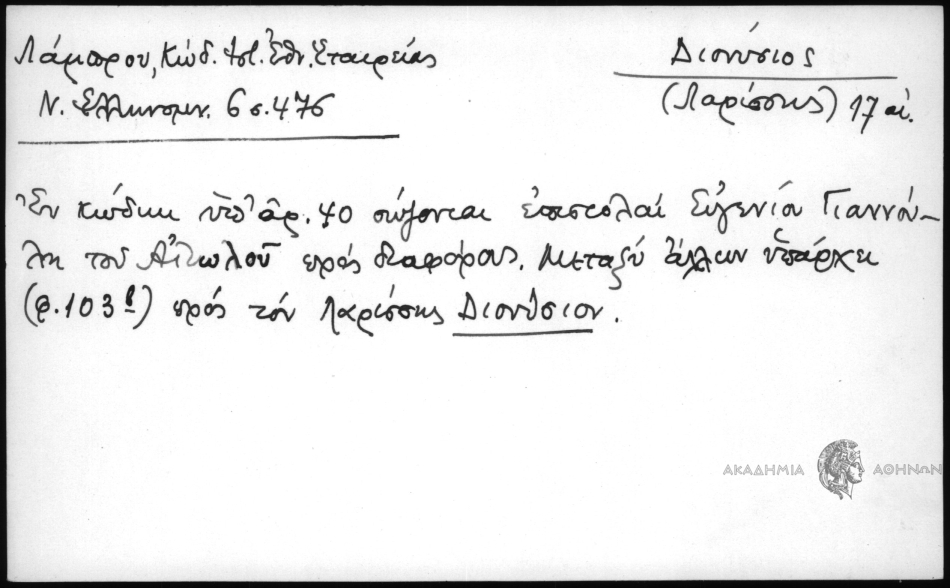 Λάμπρου, Κώδ. Ἱστ. Ἐθν. Ἑταιρείας
Ν. Ἑλληνομν. 6 σ. 476
Διονύσιος
(Λαρίσσης) 17 αἰ.
Ἐν κώδικι ὑπ' ἀρ. 40 σώζονται ἐπιστολαί Εὐγενίου Γιαννού-
λη τοῦ Αἰτωλοῦ πρός διαφόρους. Μεταξύ ἄλλων ὑπάρχει
(φ. 103 β) πρός τόν Λαρίσσης Διονύσιον.
ΑΚΑΔΗΜΙΑ ΑΘΗΝΩΝ